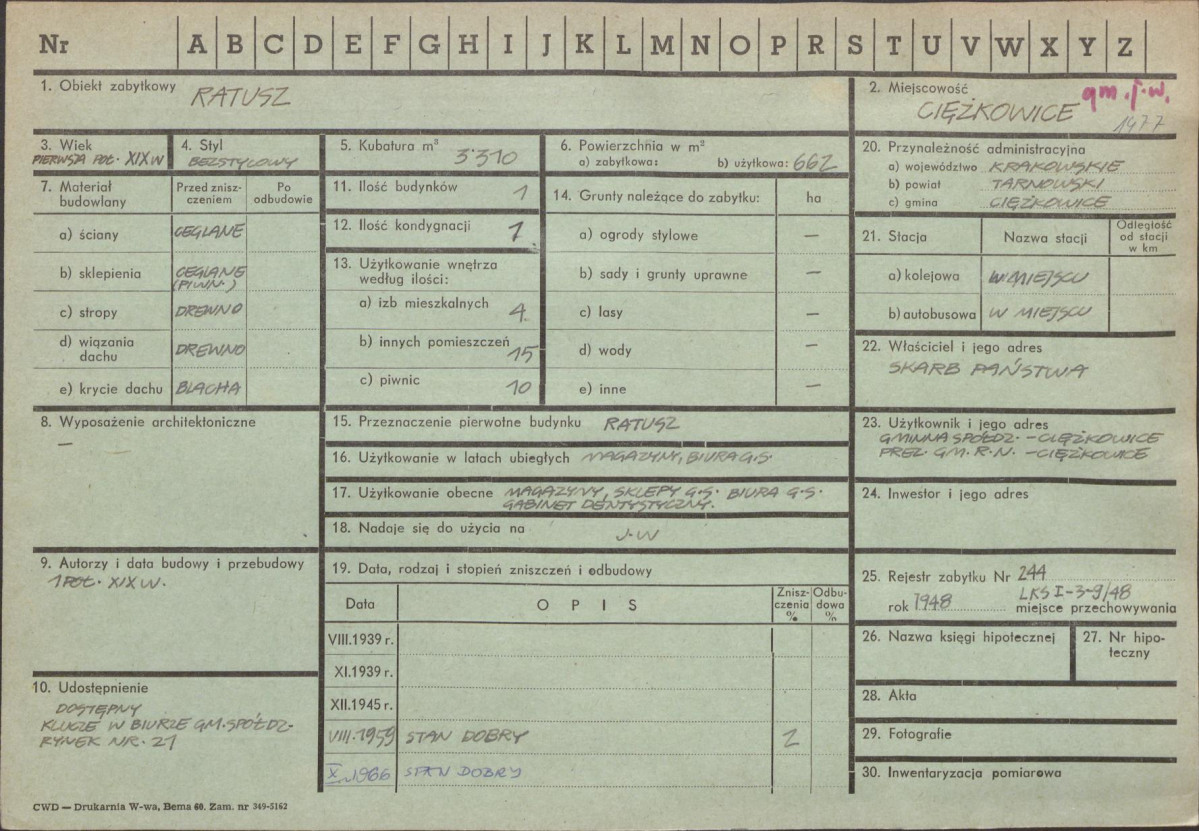 Nr A B C D E F G H I J K L M N O P R S T U V W X Y Z
1. Obiekt zabytkowy RATUSZ
2. Miejscowość gm. j. w.
CIĘŻKOWICE 1977
3. Wiek
PIERWSZA POŁ. XIX W
4. Styl
BEZSTYLOWY
5. Kubatura m³ 3·310
6. Powierzchnia w m²
a) zabytkowa: b) użytkowa: 662
7. Materiał budowlany
Przed zniszczeniem
Po odbudowie
a) ściany CEGLANE
b) sklepienia CEGLANE
(PIWN.)
c) stropy DREWNO
d) wiązania dachu DREWNO
e) krycie dachu BLACHA
11. Ilość budynków 1
12. Ilość kondygnacji 1
13. Użytkowanie wnętrza według ilości:
a) izb mieszkalnych 4
b) innych pomieszczeń 15
c) piwnic 10
14. Grunty należące do zabytku: ha
a) ogrody stylowe —
b) sady i grunty uprawne —
c) lasy —
d) wody —
e) inne —
20. Przynależność administracyjna
a) województwo KRAKOWSKIE
b) powiat TARNOWSKI
c) gmina CIĘŻKOWICE
21. Stacja Nazwa stacji Odległość od stacji w km
a) kolejowa W MIEJSCU
b) autobusowa W MIEJSCU
22. Właściciel i jego adres
SKARB PAŃSTWA
8. Wyposażenie architektoniczne
—
15. Przeznaczenie pierwotne budynku RATUSZ
16. Użytkowanie w latach ubiegłych MAGAZYNY, BIURA G.S.
17. Użytkowanie obecne MAGAZYNY, SKLEPY G.S. BIURA G.S.
GABINET DENTYSTYCZNY.
18. Nadaje się do użycia na J.W
23. Użytkownik i jego adres
GMINNA SPÓŁDZ. - CIĘŻKOWICE
PREZ. GM. R. N. - CIĘŻKOWICE
24. Inwestor i jego adres
9. Autorzy i data budowy i przebudowy
1 POŁ. XIX W.
19. Data, rodzaj i stopień zniszczeń i odbudowy
Data OPIS Zniszczenia % Odbudowa %
VIII.1939 r.
XI.1939 r.
XII.1945 r.
VIII.1959 STAN DOBRY 2
X. 1966 STAN DOBRY
25. Rejestr zabytku Nr 244
LKS I-3-9/48
rok 1948 miejsce przechowywania
26. Nazwa księgi hipotecznej
27. Nr hipoteczny
10. Udostępnienie
DOSTĘPNY
KLUCZE W BIURZE GM. SPÓŁDZ-
RYNEK NR. 21
28. Akta
29. Fotografie
30. Inwentaryzacja pomiarowa
CWD — Drukarnia W-wa, Bema 60. Zam. nr 349-5162